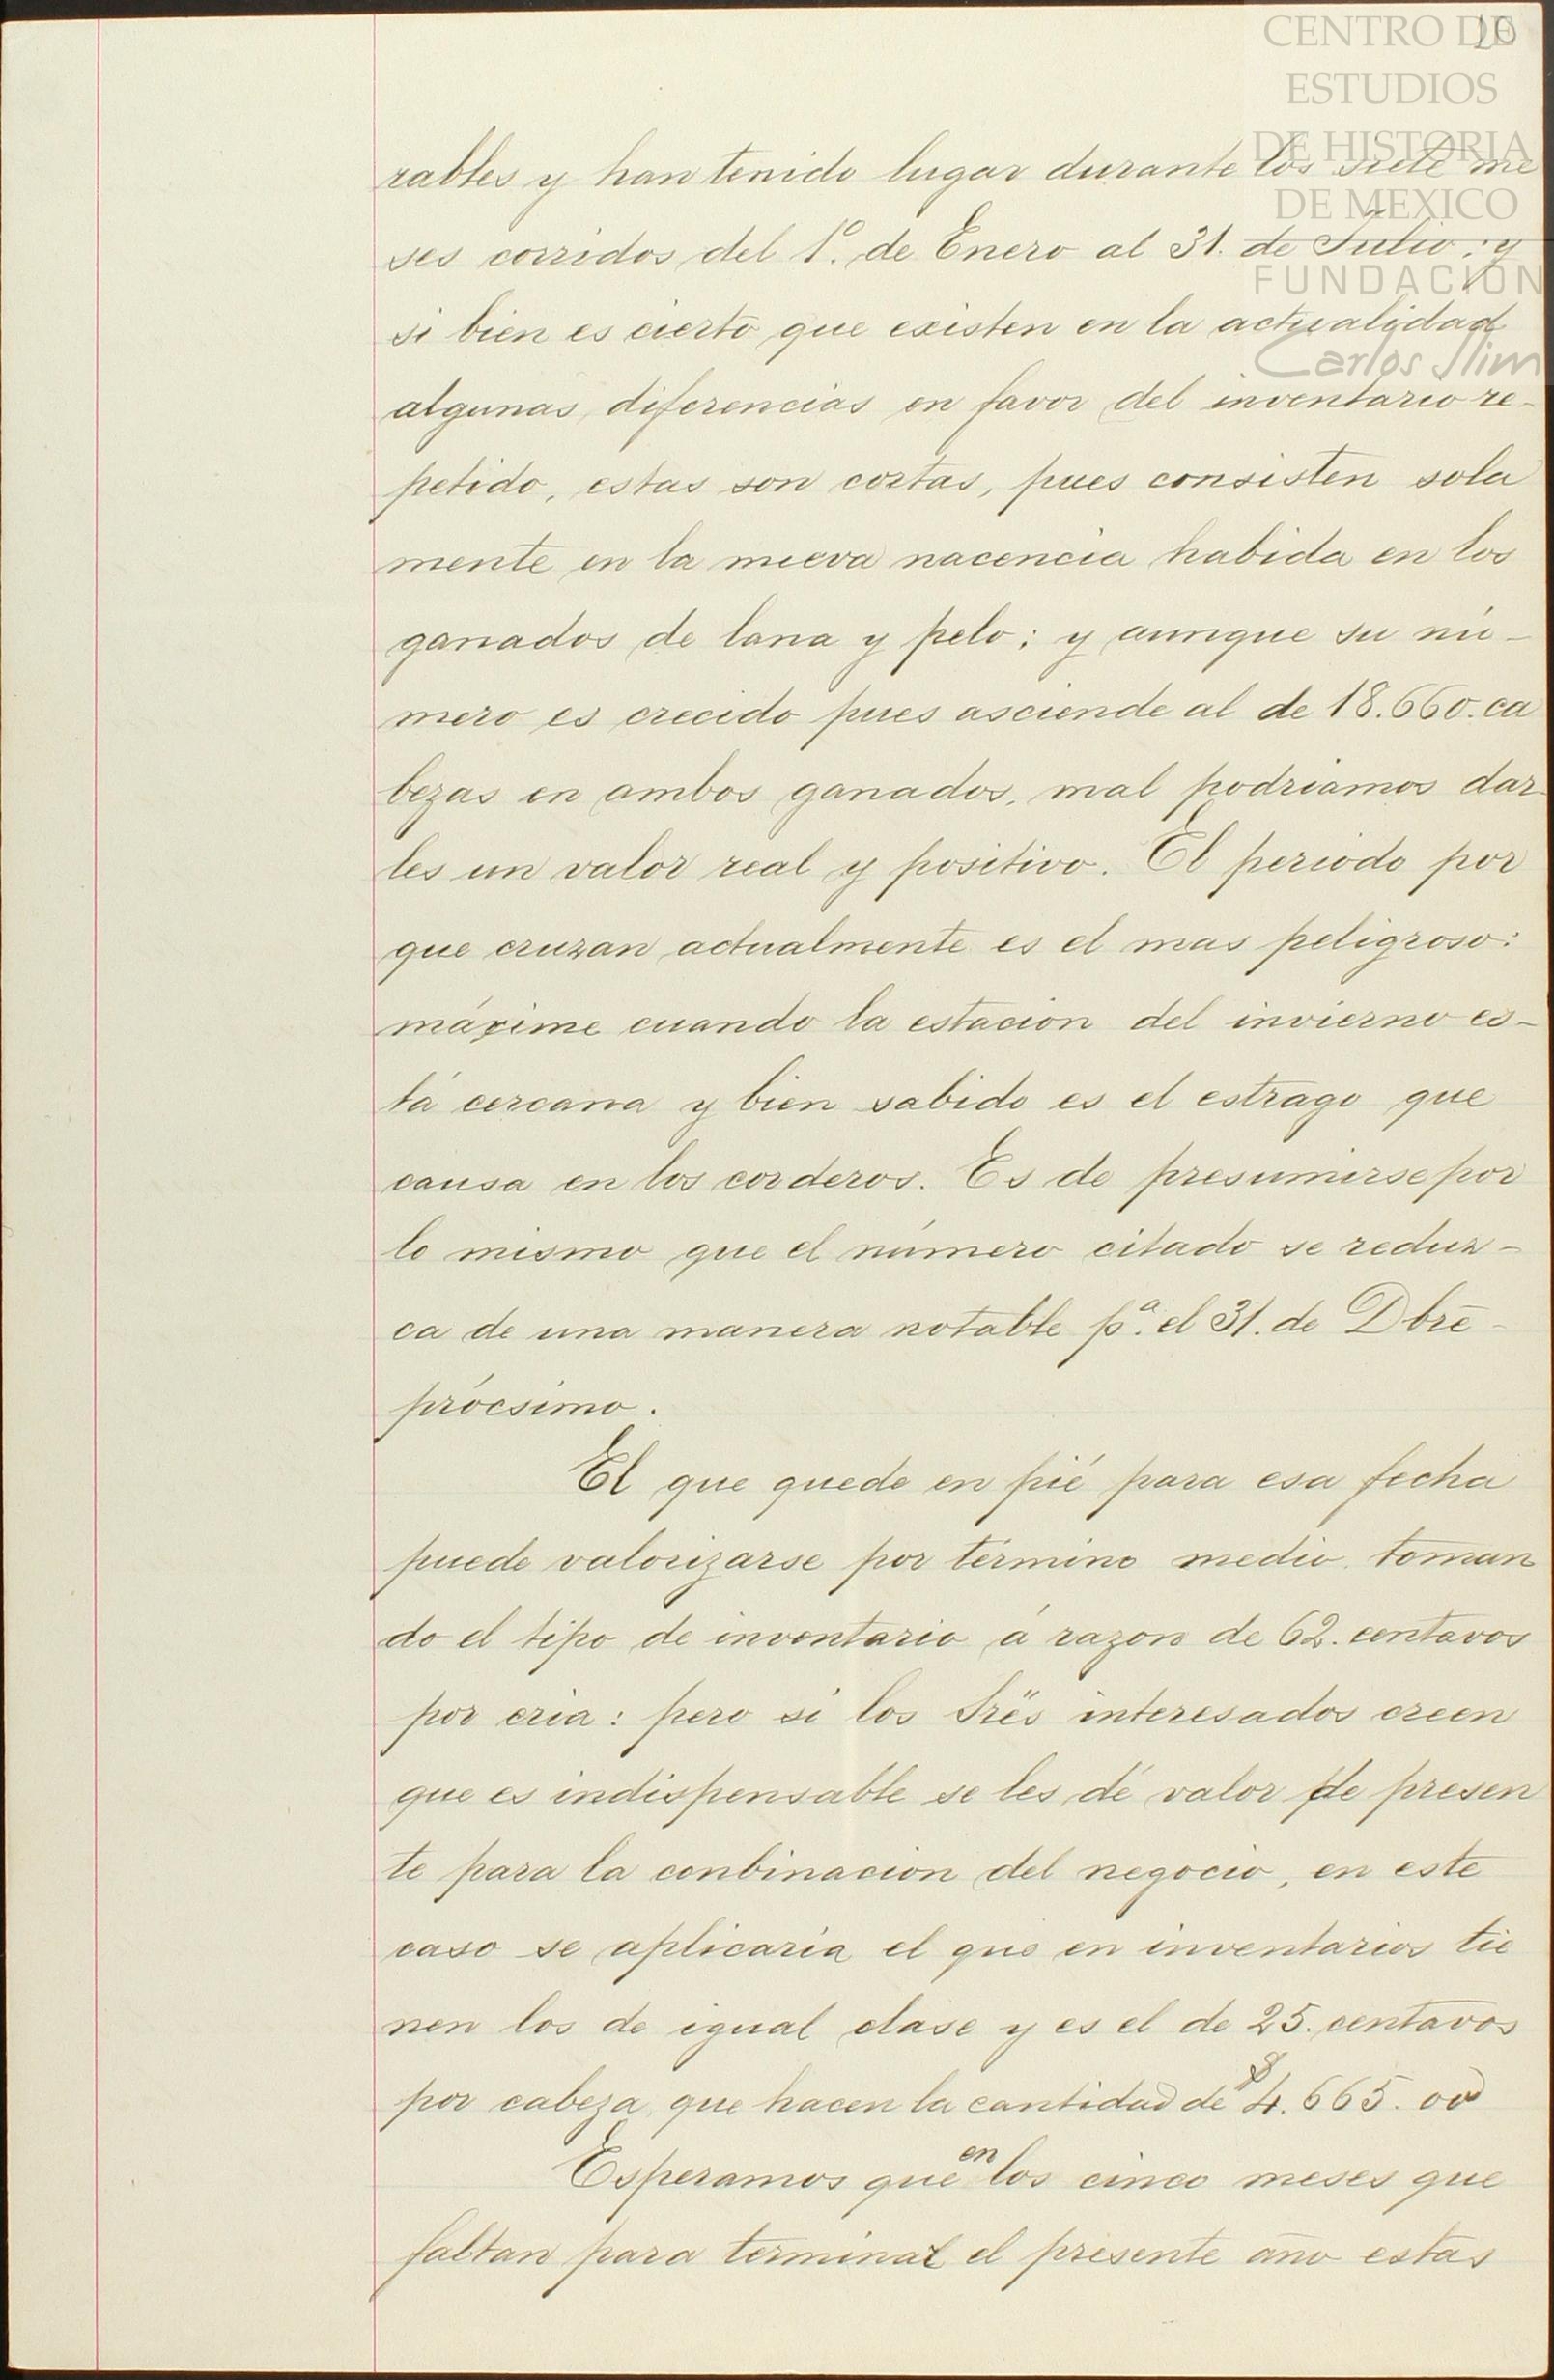 CENTRO DE
ESTUDIOS
DE HISTORIA
DE MEXICO
FUNDACIÓN
Carlos Slim
20
rables y han tenido lugar durante los siete me
ses corridos del 1º. de Enero al 31. de Julio; y
si bien es cierto que existen en la actualidad
algunas diferencias en favor del inventario re-
petido, estas son cortas, pues consisten sola
mente en la nueva nacencia habida en los
ganados de lana y pelo; y aunque su nú-
mero es crecido pues asciende al de 18.660. ca
bezas en ambos ganados, mal podriamos dar-
les un valor real y positivo. El periodo por
que cruzan actualmente es el mas peligroso:
máxime cuando la estacion del invierno es-
tá cercana y bien sabido es el estrago que
causa en los corderos. Es de presumirse por
lo mismo que el número citado se reduz-
ca de una manera notable pª. el 31. de Dbre-
prócsimo.
El que quede en pié para esa fecha
puede valorizarse por término medio toman
do el tipo de inventario á razon de 62. centavos
por cria: pero si los Sres interesados creen
que es indispensable se les dé valor de presen
te para la conbinacion del negocio, en este
caso se aplicaria el que en inventarios tie
nen los de igual clase y es el de 25. centavos
por cabeza que hacen la cantidad de $4.665.00
Esperamos que en los cinco meses que
faltan para terminar el presente año estas